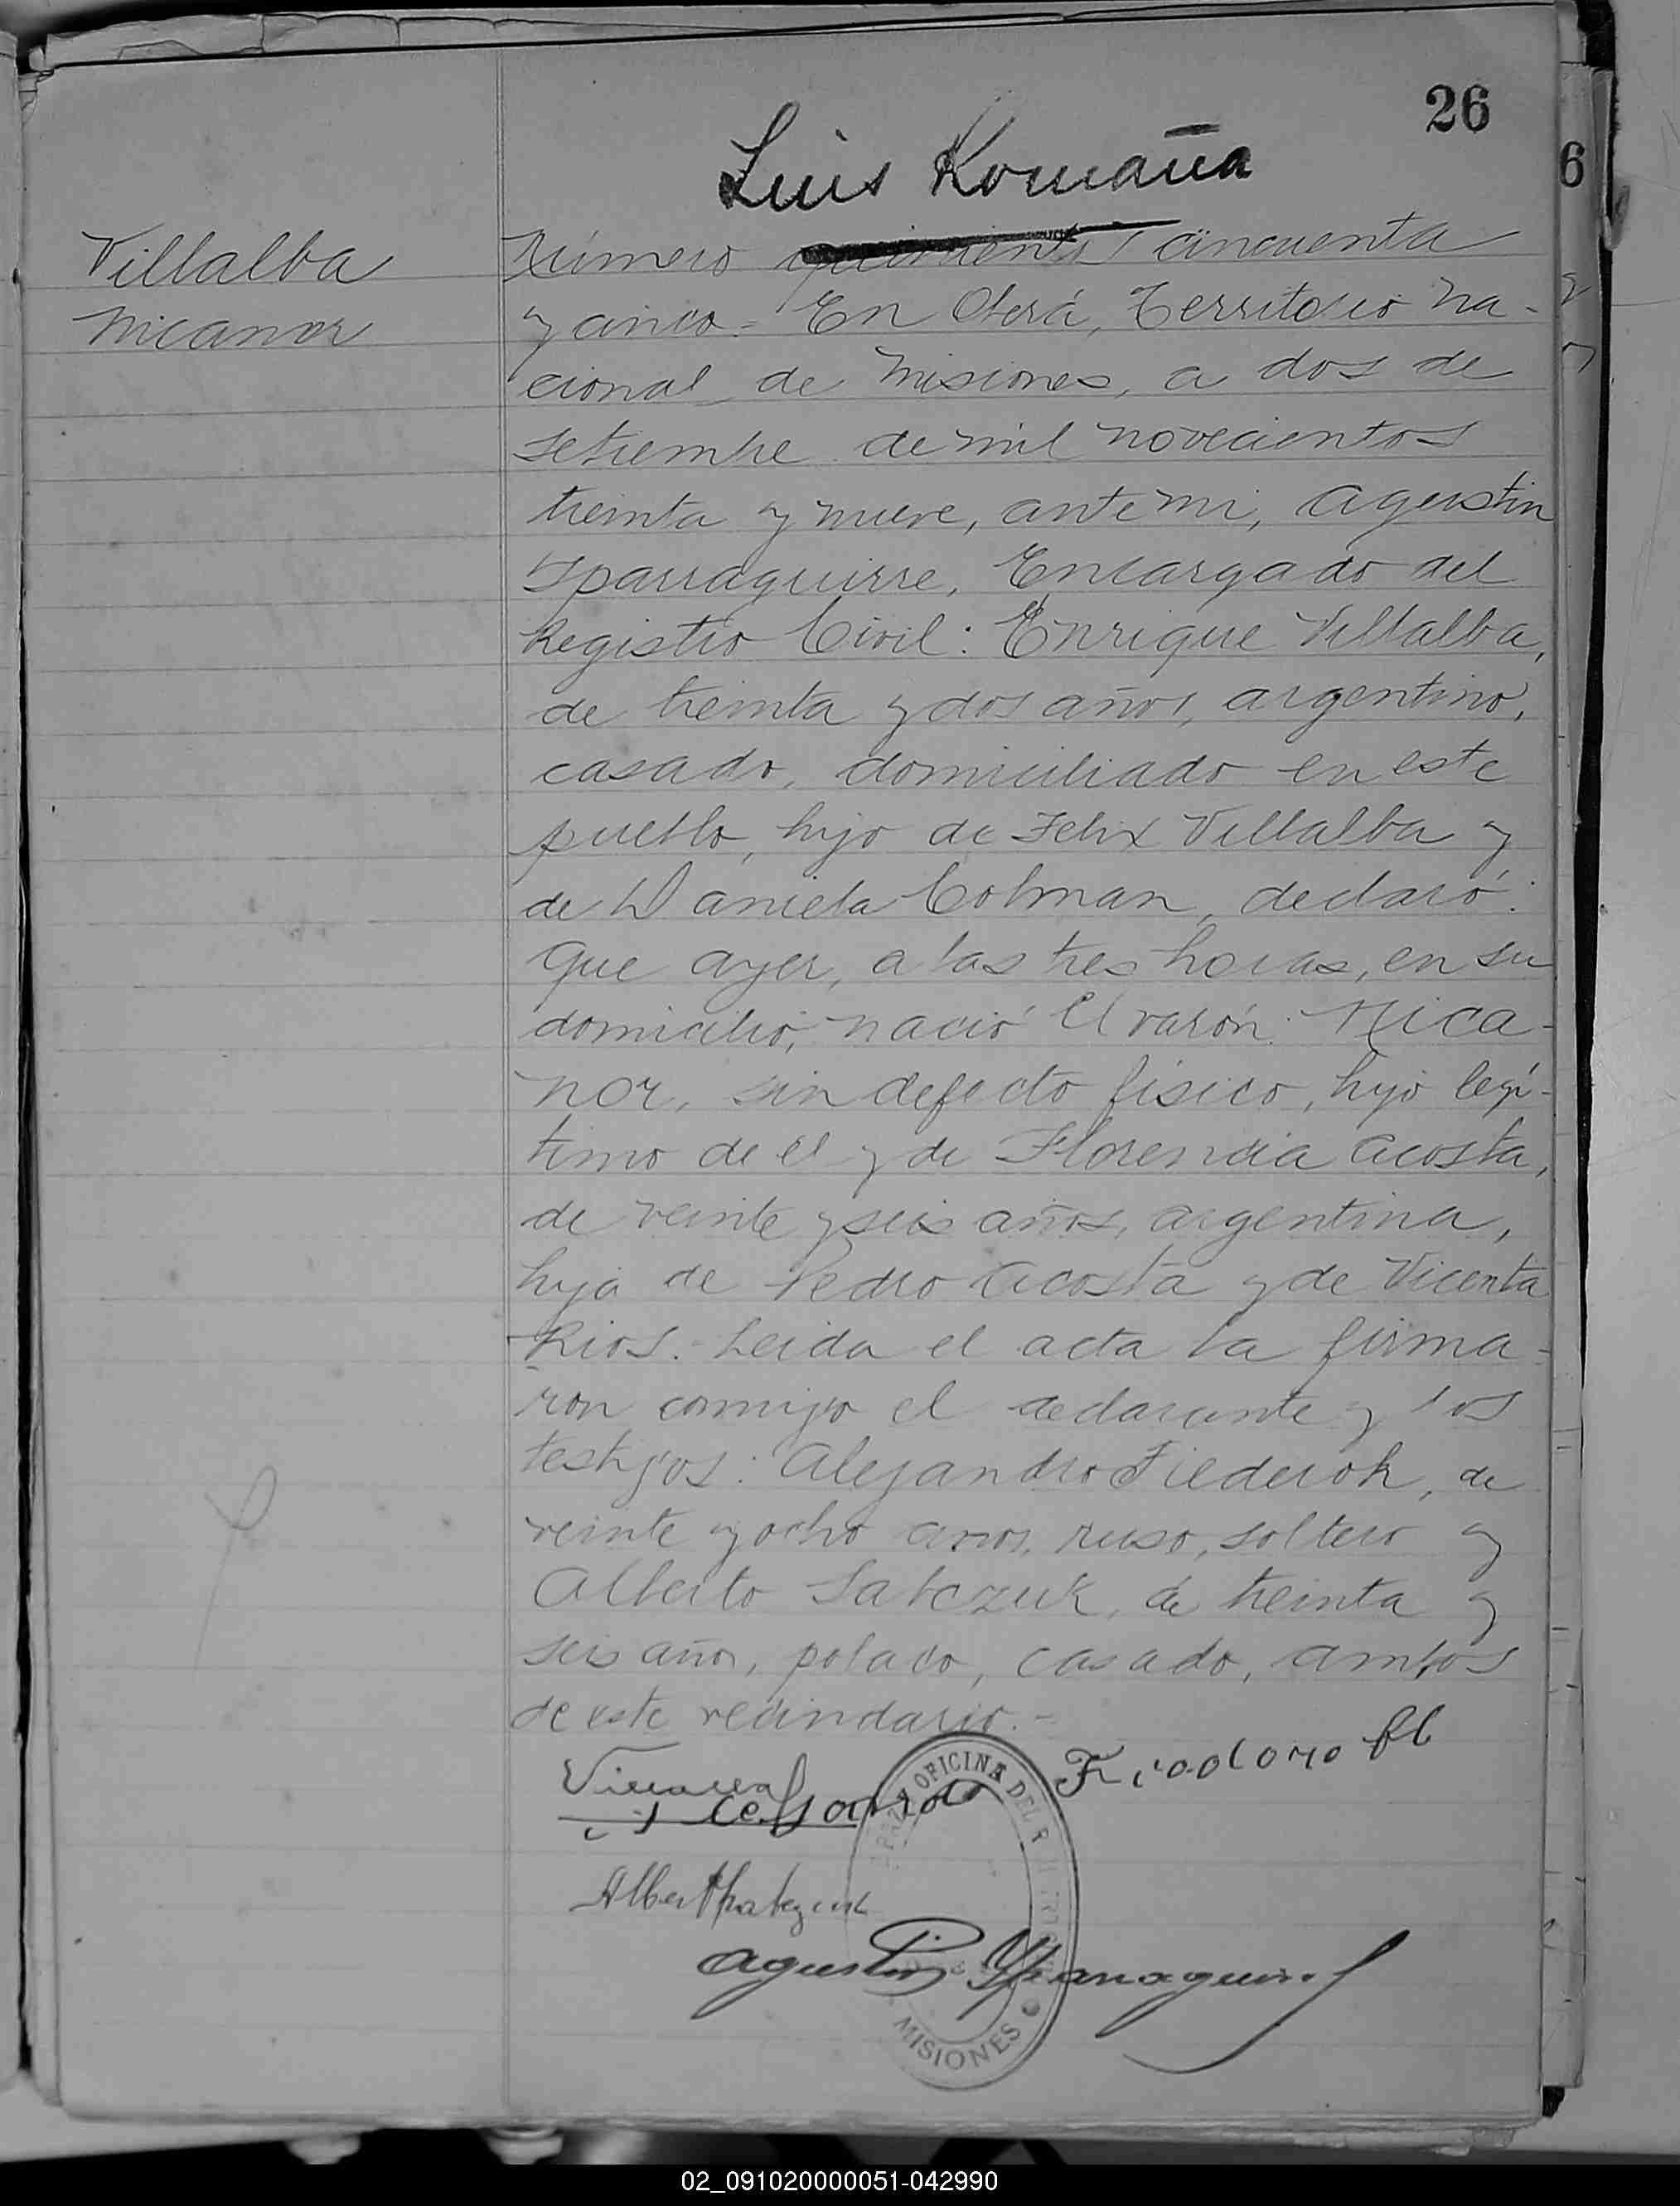 26
Luis Romaña
6
Villalba
Nicanor
Número quinientos cincuenta
y cinco.- En Oberá, Territorio Na-
cional de Misiones, a dos de
setiembre de mil novecientos
treinta y nueve, ante mi, Agustin
Yparraguirre, Encargado del
Registro Civil: Enrique Villalba,
de treinta y dos años, argentino,
casado, domiciliado en este
pueblo, hijo de Felix Villalba y
de Daniela Colman, declaró:
Que ayer, a las tres horas, en su
domicilio, nació el varón: Nica-
nor, sin defecto físico, hijo legí-
timo de el y de Florencia Acosta,
de veinte y seis años, argentina,
hija de Pedro Acosta y de Vicenta
Rios.- Leida el acta la firma-
ron conmigo el declarante y los
testigos: Alejandro Fiederok, de
veinte y ocho años, ruso, soltero y
Alberto Satczuk, de treinta y
seis años, polaco, casado, ambos
de este vecindario.-
OFICINA DEL
Agustin Yparraguirre
MISIONES
02_091020000051-042990